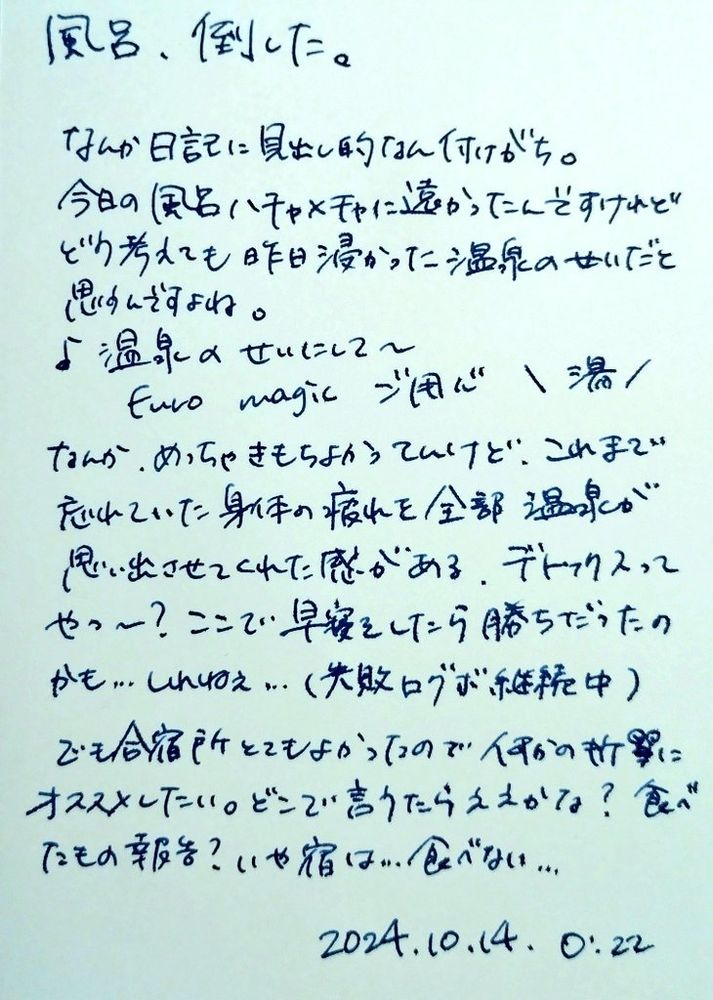 風呂、倒した。
なんか日記に見出し的なん付けがち。
今日の風呂ハチャメチャに遠かったんですけれど
どう考えても昨日浸かった温泉のせいだと
思うんですよね。
♪温泉のせいにして〜
Euro magic ご用心 \湯/
なんか、めっちゃきもちよかってんけど、これまで
忘れていた身体の疲れを全部温泉が
思い出させてくれた感がある、デトックスって
やつ〜?ここで早寝をしたら勝ちだったの
かも…しれねぇ…(失敗ログボ継続中)
でも合宿所とてもよかったので何かの折に
オススメしたい。どこで言うたらええかな?食べ
たもの報告?いや宿は…食べない…
2024.10.14. 0:22